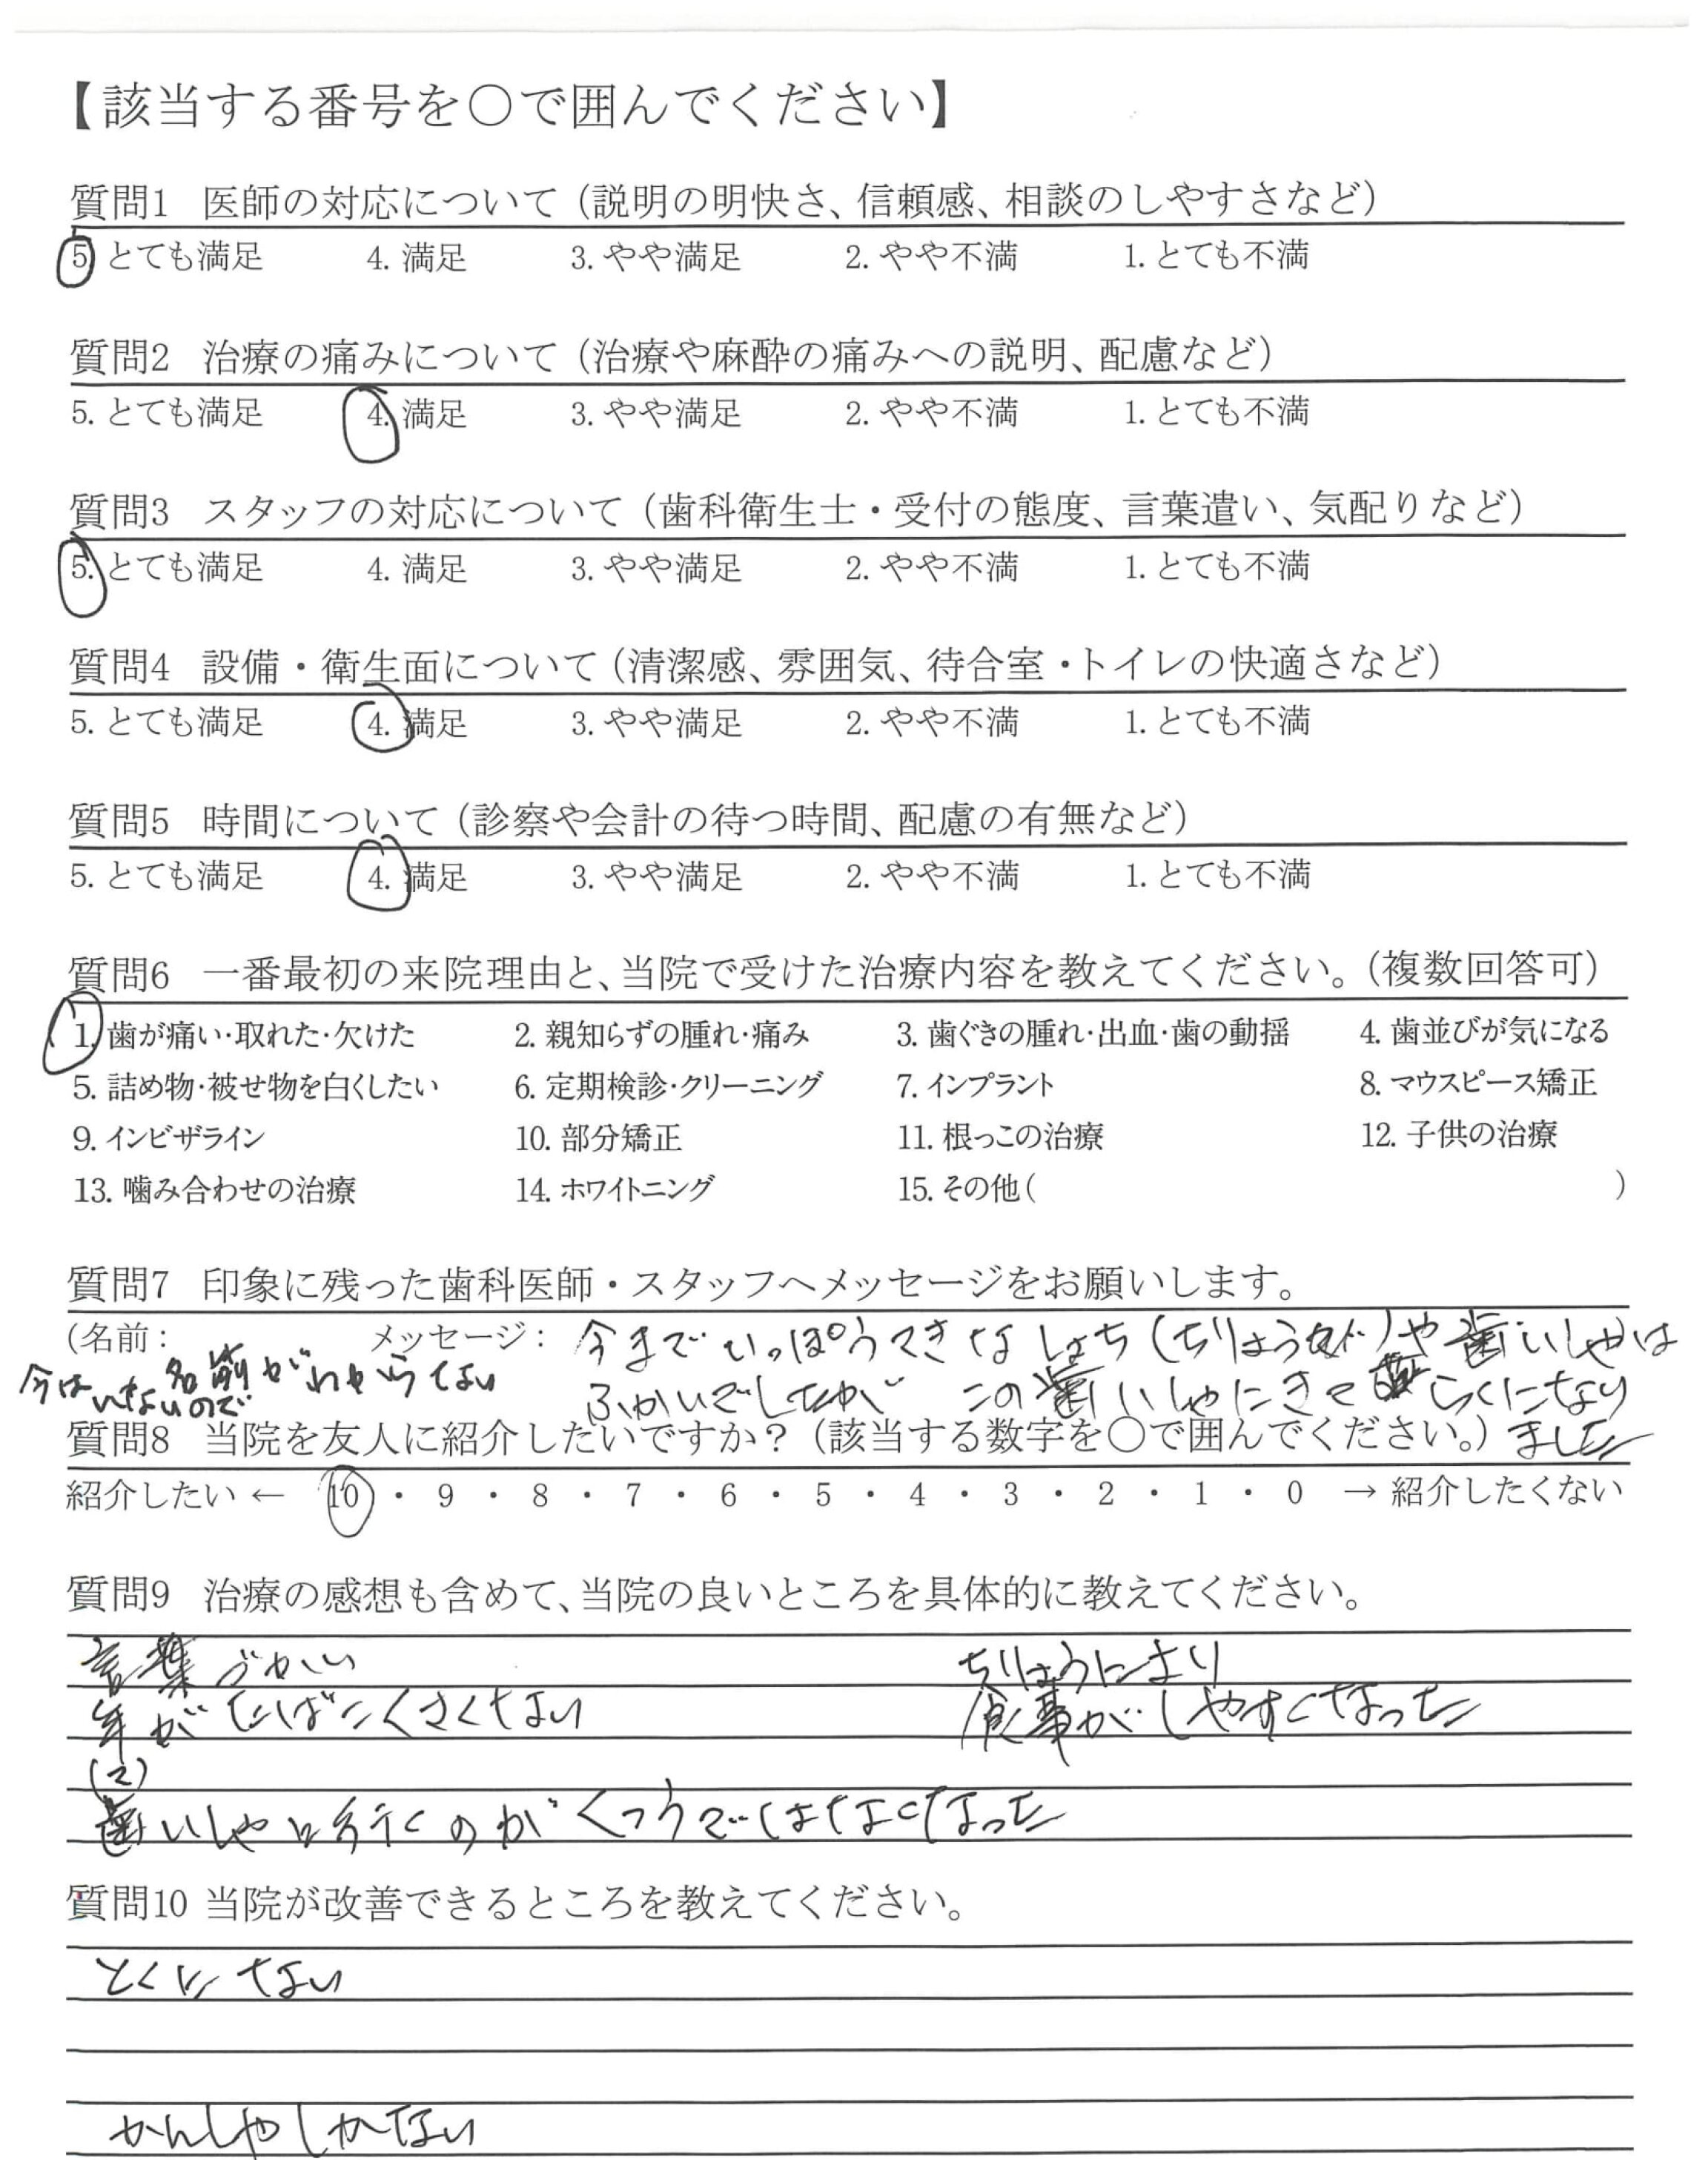 【該当する番号を〇で囲んでください】
質問1 医師の対応について（説明の明快さ、信頼感、相談のしやすさなど）
5. とても満足 4. 満足 3. やや満足 2. やや不満 1. とても不満
質問2 治療の痛みについて（治療や麻酔の痛みへの説明、配慮など）
5. とても満足 4. 満足 3. やや満足 2. やや不満 1. とても不満
質問3 スタッフの対応について（歯科衛生士・受付の態度、言葉遣い、気配りなど）
5. とても満足 4. 満足 3. やや満足 2. やや不満 1. とても不満
質問4 設備・衛生面について（清潔感、雰囲気、待合室・トイレの快適さなど）
5. とても満足 4. 満足 3. やや満足 2. やや不満 1. とても不満
質問5 時間について（診察や会計の待つ時間、配慮の有無など）
5. とても満足 4. 満足 3. やや満足 2. やや不満 1. とても不満
質問6 一番最初の来院理由と、当院で受けた治療内容を教えてください。（複数回答可）
1. 歯が痛い・取れた・欠けた 2. 親知らずの腫れ・痛み 3. 歯ぐきの腫れ・出血・歯の動揺 4. 歯並びが気になる
5. 詰め物・被せ物を白くしたい 6. 定期検診・クリーニング 7. インプラント 8. マウスピース矯正
9. インビザライン 10. 部分矯正 11. 根っこの治療 12. 子供の治療
13. 噛み合わせの治療 14. ホワイトニング 15. その他（ ）
質問7 印象に残った歯科医師・スタッフへメッセージをお願いします。
（名前： メッセージ： 今までいっぽうてきなしょち（ちりょうなど）や歯いしゃは
名前がわからない
今はいないので
ふかいでしたが この歯いしゃにきてらくになり
ました
質問8 当院を友人に紹介したいですか？（該当する数字を〇で囲んでください。）
紹介したい ← 10 ・ 9 ・ 8 ・ 7 ・ 6 ・ 5 ・ 4 ・ 3 ・ 2 ・ 1 ・ 0 → 紹介したくない
質問9 治療の感想も含めて、当院の良いところを具体的に教えてください。
言葉づかい ちりょうにより
がたばこくさくない 食事がしやすくなった
歯いしゃに行くのがくつうではなくなった
質問10 当院が改善できるところを教えてください。
とくにない
かんしゃしかない